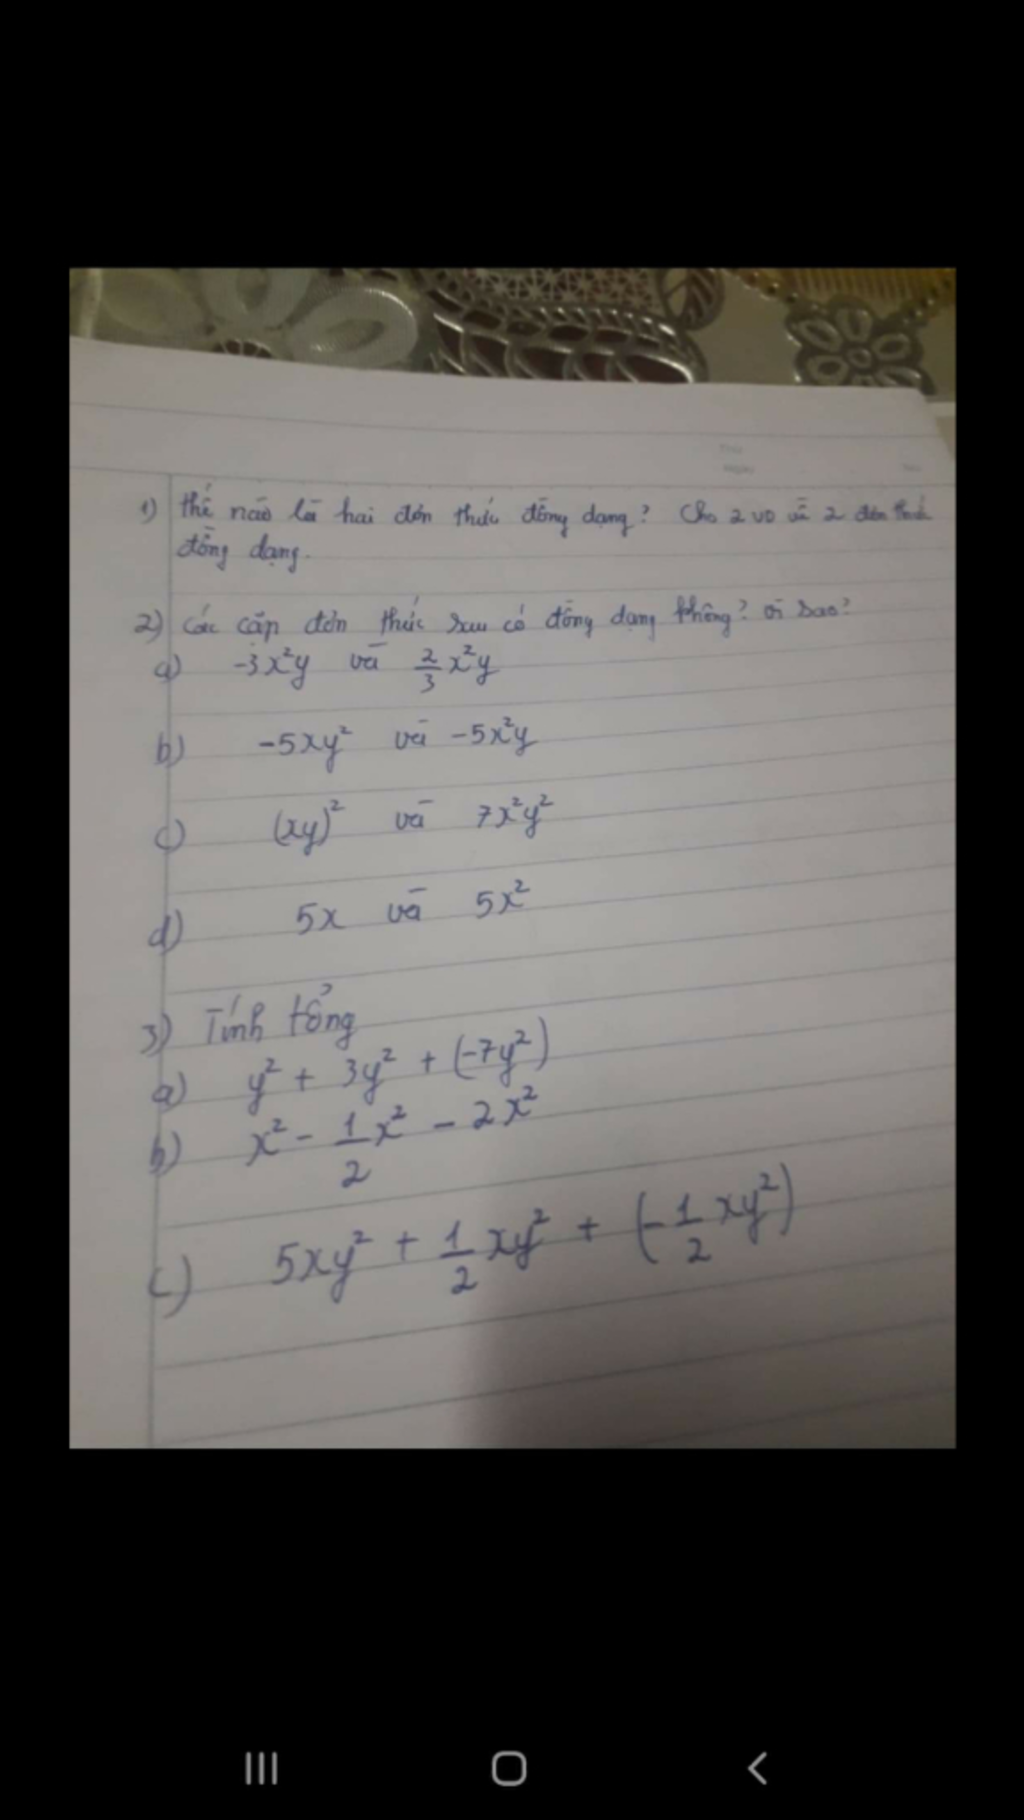 1) thế nào là hai đơn thức đồng dạng? Cho 2 VD về 2 đơn thức
đồng dạng.
2) các cặp đơn thức sau có đồng dạng không? vì sao?
a) -3x²y và 2/3 x²y
b) -5xy² và -5x²y
c) (xy)² và 7x²y²
d) 5x và 5x²
3) Tính tổng
a) y² + 3y² + (-7y²)
b) x² - 1/2 x² - 2x²
c) 5xy² + 1/2 xy² + (-1/2 xy²)